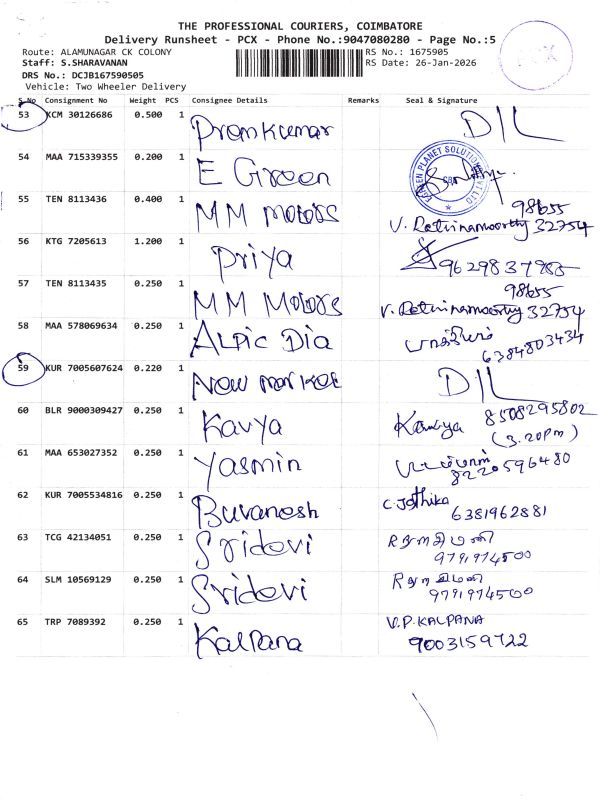 THE PROFESSIONAL COURIERS, COIMBATORE
Delivery Runsheet - PCX - Phone No.:9047080280 - Page No.:5
Route: ALAMUNAGAR CK COLONY RS No.: 1675905
Staff: S.SHARAVANAN RS Date: 26-Jan-2026
DRS No.: DCJB167590505
Vehicle: Two Wheeler Delivery
PCX
S.No Consignment No Weight PCS Consignee Details Remarks Seal & Signature
53 KCM 30126686 0.500 1 Premkumar D/L
54 MAA 715339355 0.200 1 E Green
GREEN PLANET SOLUTIONS
55 TEN 8113436 0.400 1 MM Motors V. Rethinamoorthy 98655 32754
56 KTG 7205613 1.200 1 Priya 9629837983
57 TEN 8113435 0.250 1 MM Motors V. Rethinamoorthy 98655 32754
58 MAA 578069634 0.250 1 ALPic Dia 6384803434
59 KUR 7005607624 0.220 1 New market D/L
60 BLR 9000309427 0.250 1 Kavya Kavya 8508295802
(3.20pm)
61 MAA 653027352 0.250 1 Yasmin 8220596480
62 KUR 7005534816 0.250 1 Buvanesh C. Jothika
6381962881
63 TCG 42134051 0.250 1 Sridevi
9791974500
64 SLM 10569129 0.250 1 Sridevi
9791974500
65 TRP 7089392 0.250 1 Kalpana V.P.KALPANA
9003159722